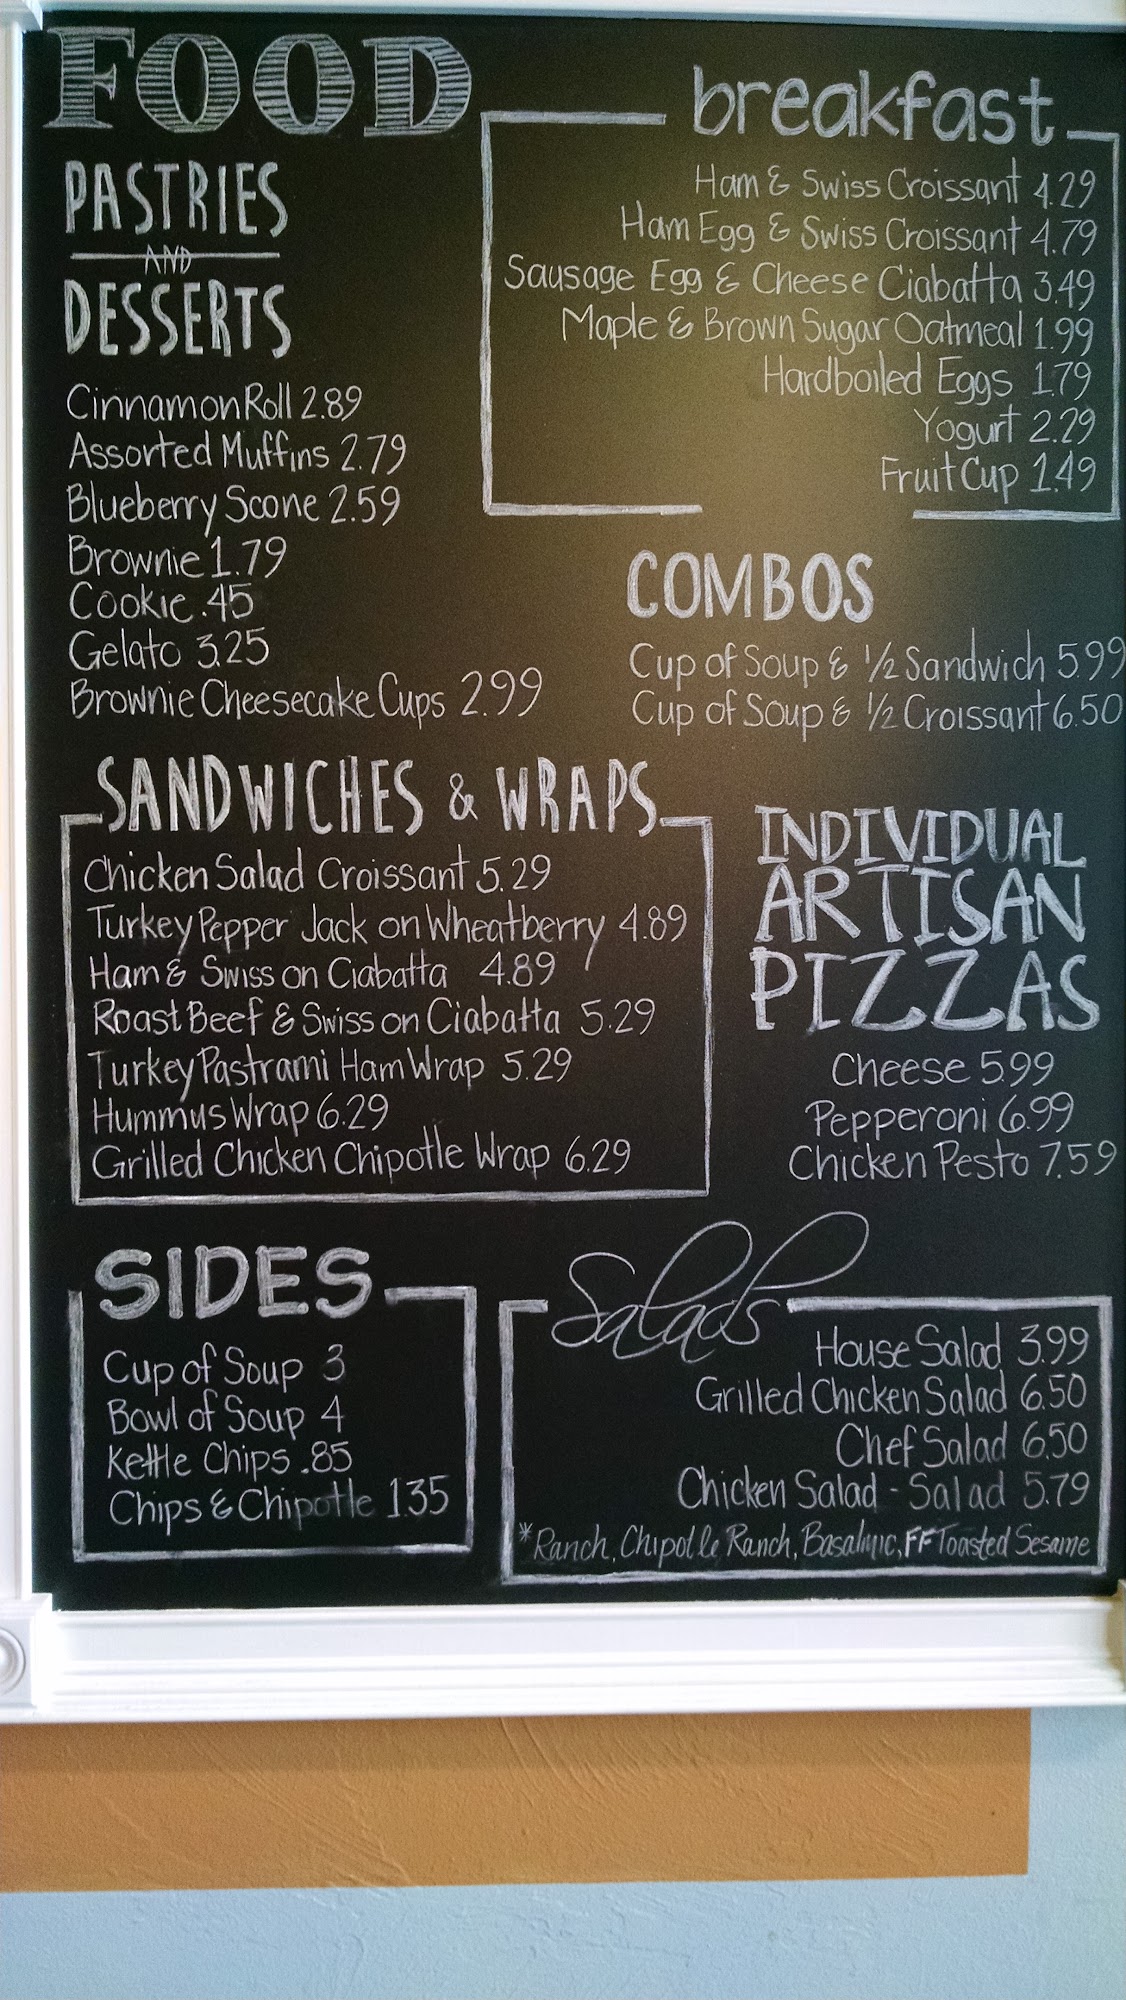 FOOD
PASTRIES
AND
DESSERTS
Cinnamon Roll 2.89
Assorted Muffins 2.79
Blueberry Scone 2.59
Brownie 1.79
Cookie .45
Gelato 3.25
Brownie Cheesecake Cups 2.99
breakfast
Ham & Swiss Croissant 4.29
Ham Egg & Swiss Croissant 4.79
Sausage Egg & Cheese Ciabatta 3.49
Maple & Brown Sugar Oatmeal 1.99
Hardboiled Eggs 1.79
Yogurt 2.29
Fruit Cup 1.49
COMBOS
Cup of Soup & 1/2 Sandwich 5.99
Cup of Soup & 1/2 Croissant 6.50
SANDWICHES & WRAPS
Chicken Salad Croissant 5.29
Turkey Pepper Jack on Wheatberry 4.89
Ham & Swiss on Ciabatta 4.89
Roast Beef & Swiss on Ciabatta 5.29
Turkey Pastrami Ham Wrap 5.29
Hummus Wrap 6.29
Grilled Chicken Chipotle Wrap 6.29
INDIVIDUAL
ARTISAN
PIZZAS
Cheese 5.99
Pepperoni 6.99
Chicken Pesto 7.59
SIDES
Cup of Soup 3
Bowl of Soup 4
Kettle Chips .85
Chips & Chipotle 1.35
Salads
House Salad 3.99
Grilled Chicken Salad 6.50
Chef Salad 6.50
Chicken Salad - Salad 5.79
*Ranch, Chipotle Ranch, Basalmic, FF Toasted Sesame